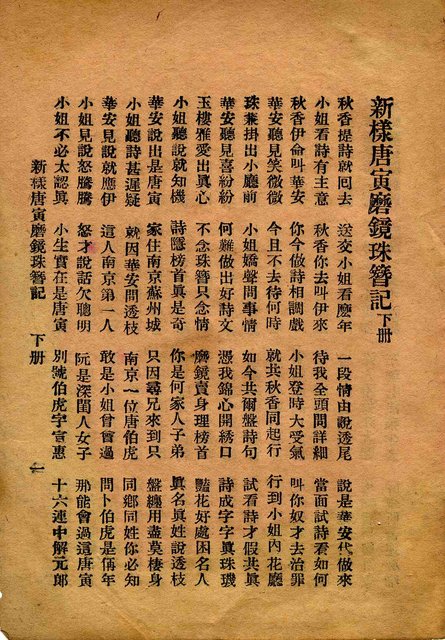 新樣唐寅磨鏡珠簪記 下册
秋香提詩就回去 送交小姐看麽年 一段情由說透尾 說是華安代做來
小姐看詩有主意 秋香你去叫伊來 待我全頭問詳細 當面試詩看如何
秋香伊命叫華安 你今做詩相調戲 小姐登時大受氣 叫你奴才去治罪
華安聽見笑微微 今且不去待何時 就共秋香同起行 行到小姐內花廳
珠簾掛出小廳前 小姐嬌聲問事情 如今共爾盤詩句 試看詩才假共眞
華安聽見喜紛紛 何難做出好詩文 憑我錦心開綉口 詩成字字眞珠璣
玉樓雅愛出眞心 不念珠簪只念情 磨鏡賣身理榜首 豔花好處困名人
小姐聽說就知機 詩隱榜首眞是奇 你是何家人子弟 眞名眞姓說透枝
華安說出是唐寅 家住南京蘇州城 只因尋兄來到只 盤纏用盡莫棲身
小姐聽詩甚遲疑 就因華安問透枝 南京一位唐伯虎 同鄉同姓你必知
華安見說就應伊 這人南京第一人 敢是小姐曾會過 問卜伯虎是偁年
小姐見說怒騰騰 怒才說話欠聰明 阮是深閨人女子 那能會過這唐寅
小姐不必太認眞 小生實在是唐寅 別號伯虎字言惠 十六連中解元郎
新樣唐寅磨鏡珠簪記 下册